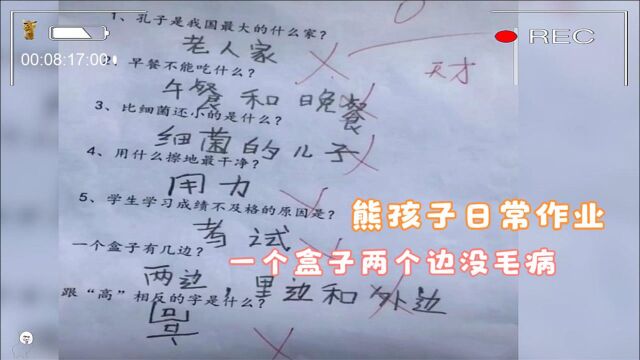 1、孔子是我国最大的什么家？
0
REC
老人家
天才
00:08:17:00
2、早餐不能吃什么？
午餐和晚餐
3、比细菌还小的是什么？
细菌的儿子
4、用什么擦地最干净？
用力
5、学生学习成绩不及格的原因是？
熊孩子日常作业
考试
一个盒子有几边？
一个盒子两个边没毛病
两边，里边和外边
跟“高”相反的字是什么？